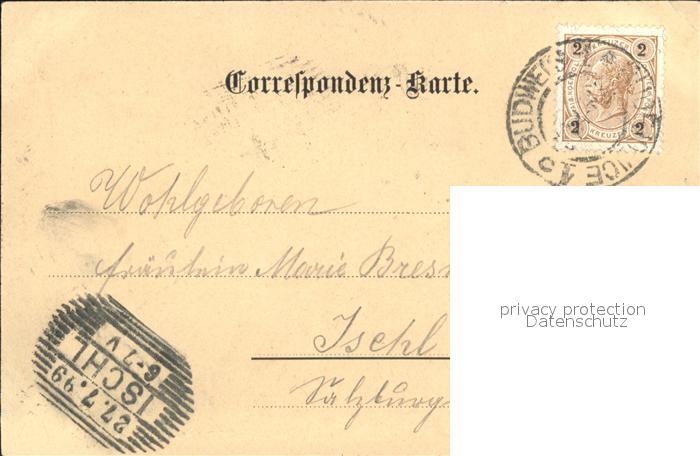 Correspondenz-Karte.
2 KREUZER 2
2 KREUZER 2
BUDWEIS
1
Wohlgeboren
Fräulein Marie Bres
Ischl
Salzburg
ISCHL
27.7.99
6-7V
privacy protection
Datenschutz